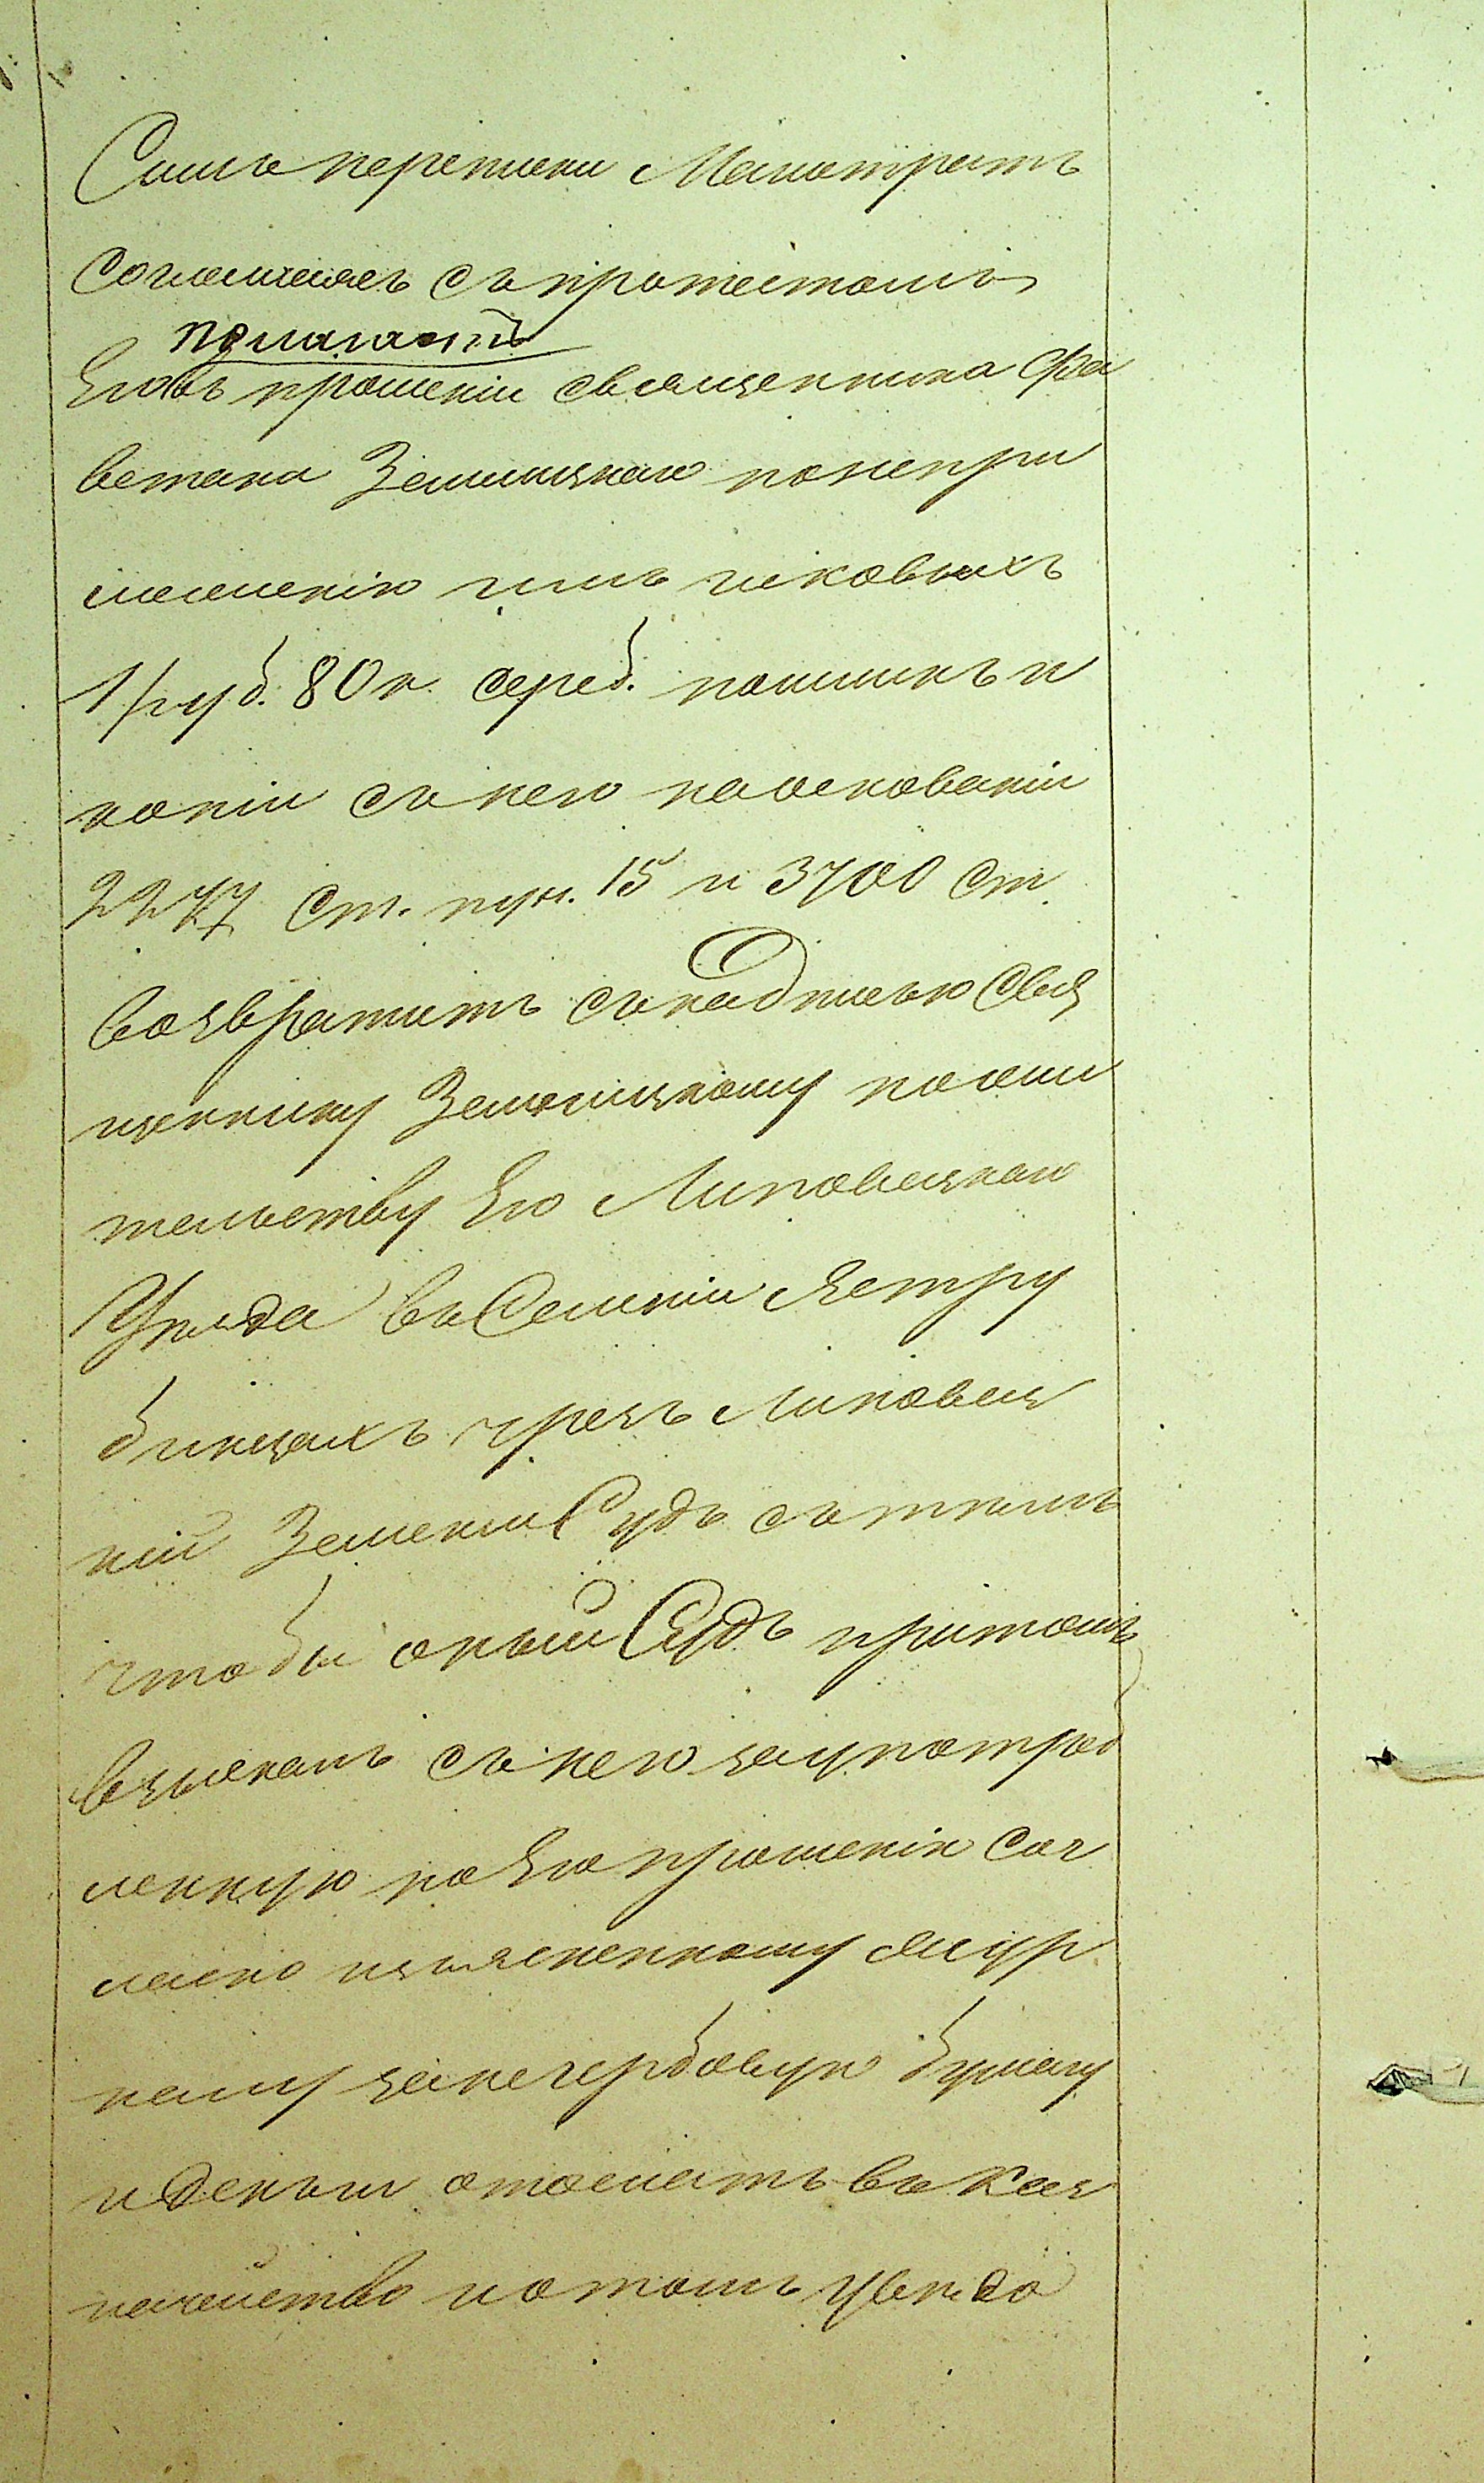 Симъ переписки Магистратъ
соглашаясь съ протестомъ
полагаетъ
Его въ прошеніи священника Фа
встана Зелинскаго понепри
ложенію имъ исковыхъ
1 руб. 80 к. сереб. пошлинъ и
копіи съ него на основаніи
2277 ст. пун. 15 и 3700 ст.
возвратить съ надписью Свя
щеннику Зелинскому по жи
тельству Его Липовецкаго
Уезда въ Селеніи Ястру
бинцахъ чрезъ Липовец
кій Земскій Судъ съ тѣмъ
чтобы оный Судъ притомъ
взыскалъ съ него за употреб
ленную по Его прошенію Сог
ласно изъясненному
за негербовую бумагу
и деньги отослать въ Каз
начейство и о томъ уведо